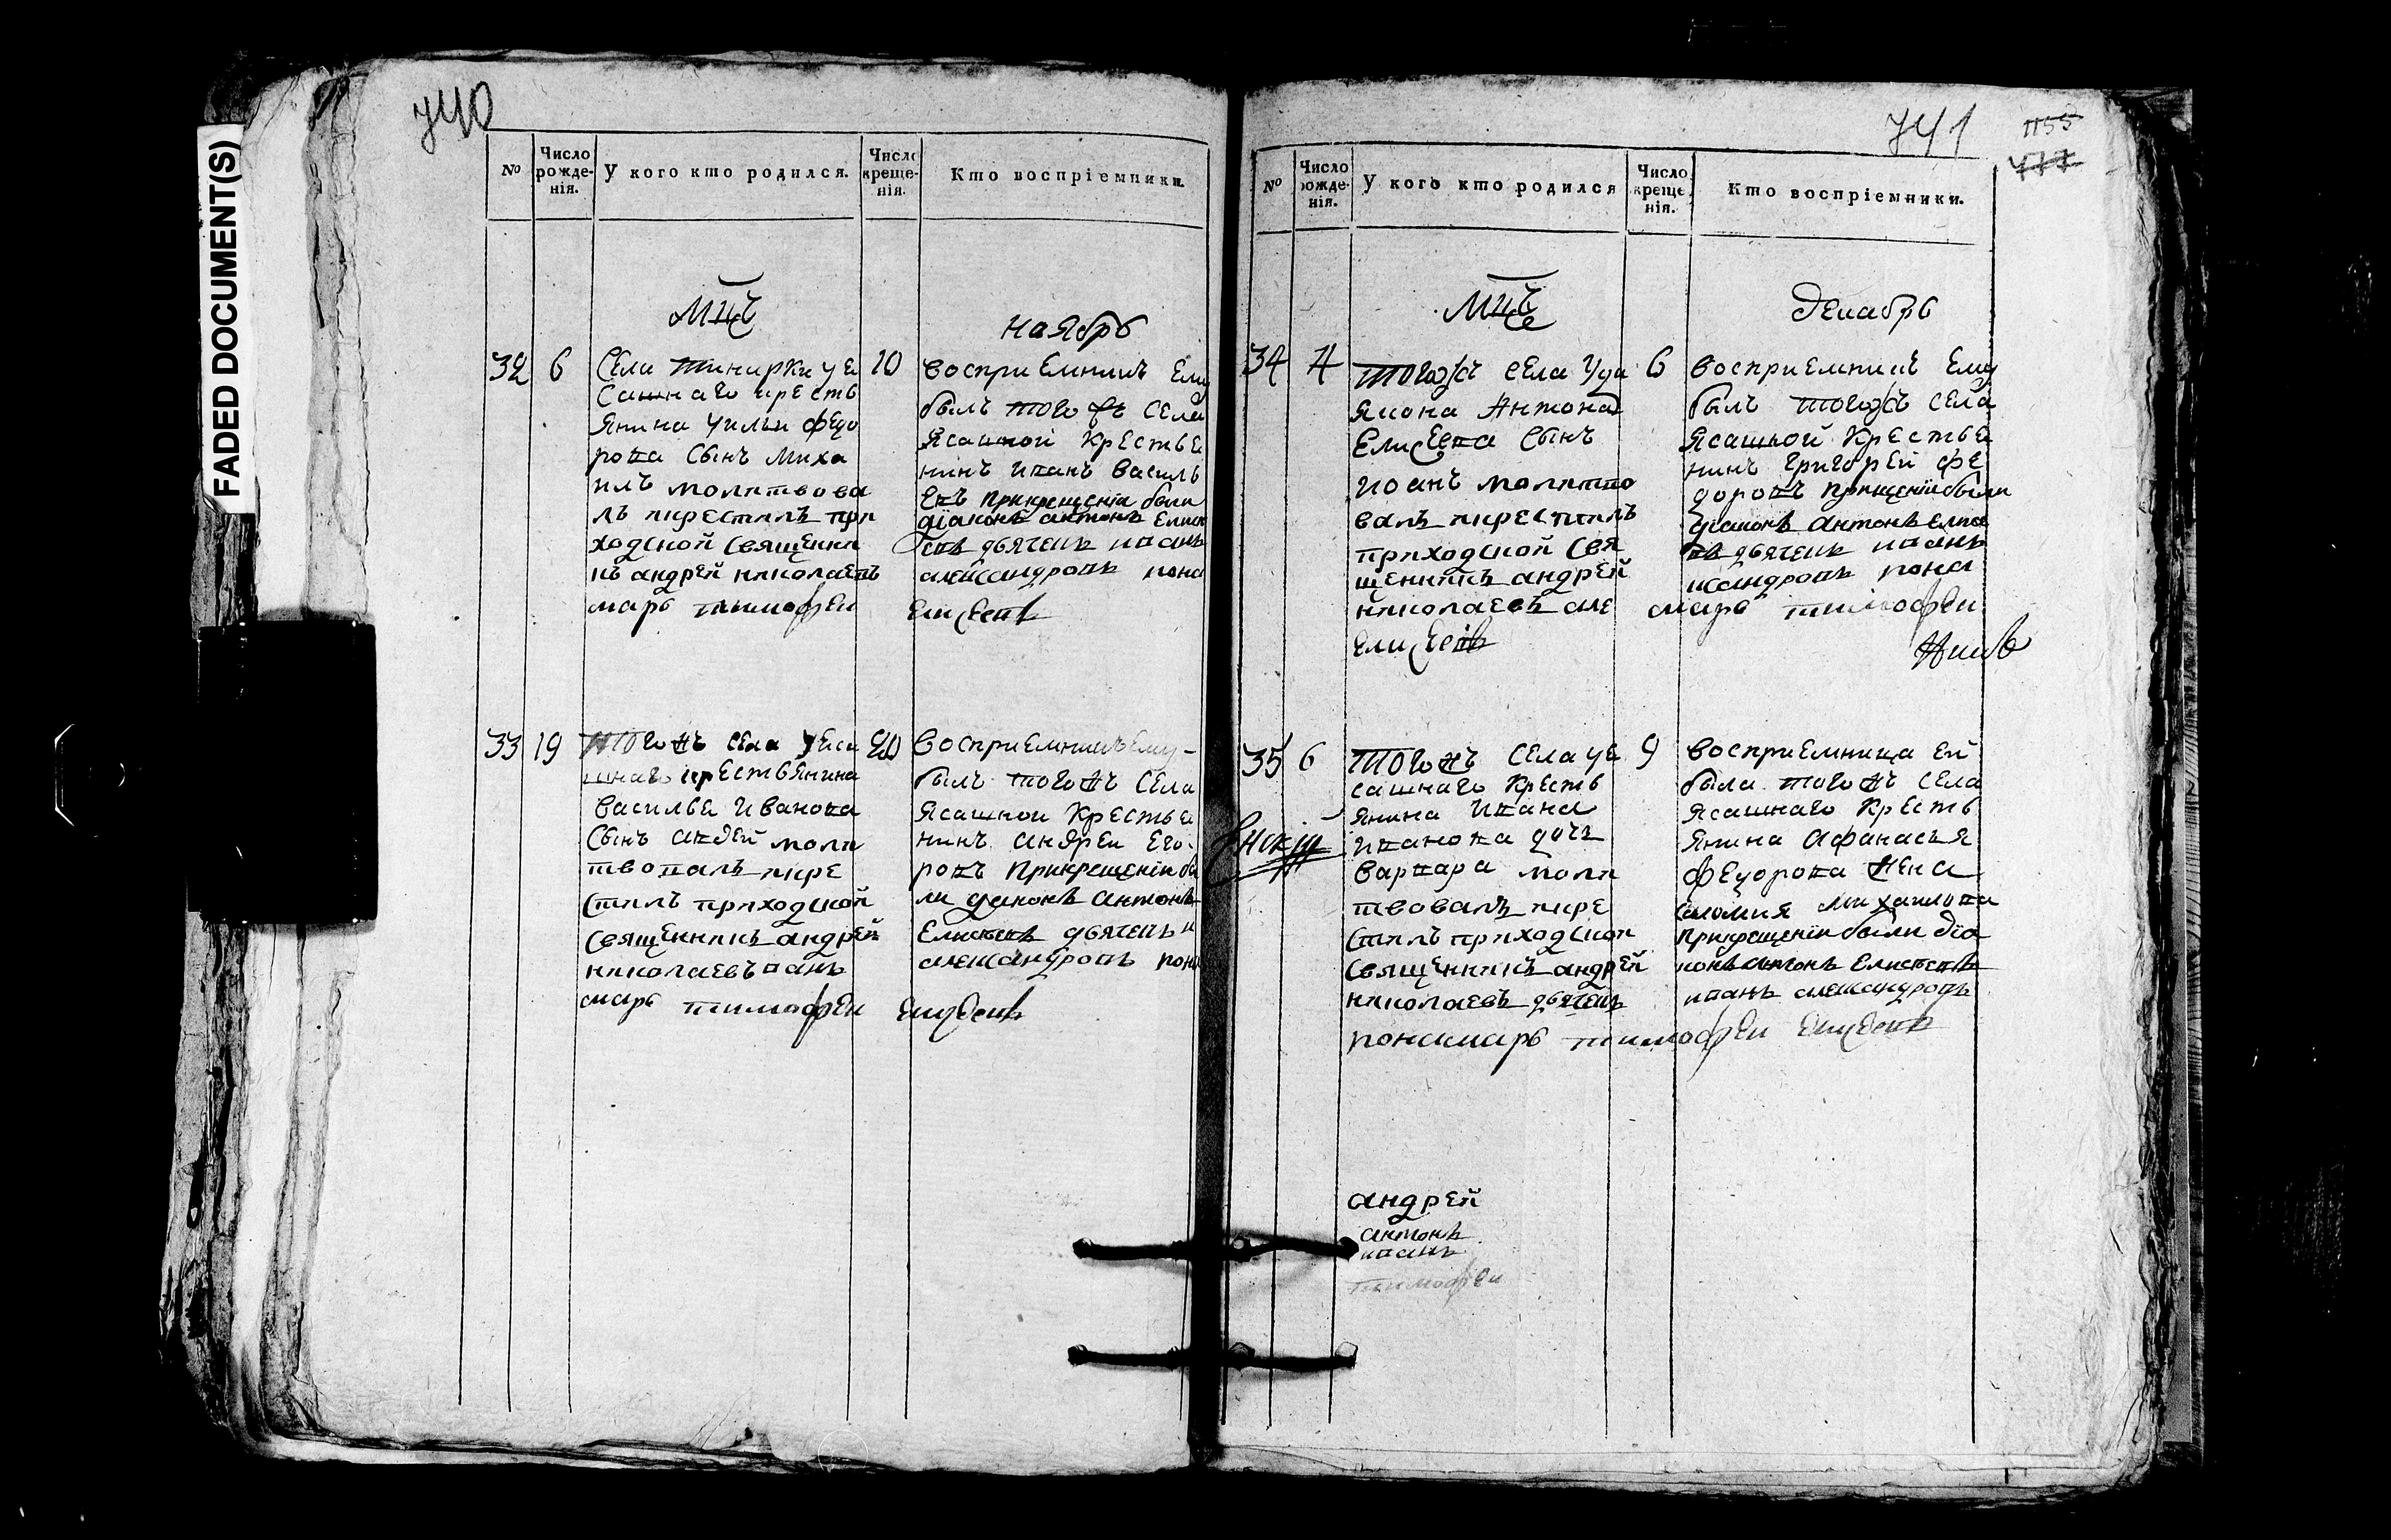 FADED DOCUMENT(S)
740
№
Число рожденія.
У кого кто родился.
Число крещенія.
Кто воспріемники.
Мцъ
наябрь
32
6
10
Села Тинирки уе
сашнаго кресть
янина Уильи федо
рова сынъ Миха
илъ молитвова
лъ икрестилъ при
ходской священни
къ андрей николаевъ
марь тимофеи
восприемникъ Ему
былъ тогожъ села
Ясашной Крестье
нинъ иванъ василь
евъ прикрещеніи были
діаконъ антонъ Елисе
евъ дьячекъ иванъ
александровъ пона
елисеевъ
33
19
20
Тогожъ села уеса
шнаго крестьянина
василья иванова
сынъ авдей моли
твовалъ икре
стилъ приходской
священникъ андрей
николаевъ ванъ
марь тимофеи
восприемникъ ему
былъ тогожъ села
Ясашнои Крестье
нинъ андреи Его
ровъ прикрещеніи бы
ли діаконъ антонъ
Елисеевъ дьячекъ и
александровъ пона
елисеевъ
741
1155
477
№
Число рожденія.
У кого кто родился
Число крещенія.
Кто воспріемники.
Мцъ
декабрь
34
4
6
Тогожъ села удиа
якона Антона
Елисеева сынъ
иоанъ молитво
валъ икрестилъ
приходской свя
щенникъ андрей
николаевъ але
елисеевъ
восприемникъ Ему
былъ тогожъ села
Ясашной Крестье
нинъ григорей фе
доровъ прищеніи были
діаконъ антонъ елисе
евъ дьячекъ иванъ
ксандровъ пона
марь тимофеи
35
6
9
Тогожъ села уе
сашнаго Кресть
янина ивана
иванова дочь
варвара моли
твовалъ икре
стилъ приходской
священникъ андрей
николаевъ дьячекъ
восприемница ей
была тогожъ села
Ясашнаго Кресть
янина Афанасья
федорова жена
Михаилова
прикрещеніи были діа
конъ антонъ Елисеевъ
иванъ александровъ
понамарь тимофеи елисеевъ
андрей
антонъ
иванъ
тимофеи